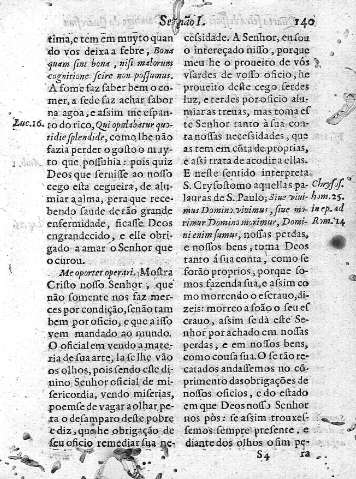 Sermão I. 140
tima, e tem em muyto quan
do vos deixa a febre, Bona
quam sint bona, nisi malorum
cognitione scire non possumus.
A fome faz saber bem o co-
mer, a sede faz achar sabor
na agoa, e assim me espan-
Luc. 16. to do rico, Qui epulabatur quo-
tidie splendide, como lhe não
fazia perder o gosto o muy-
to que possuhia: pois quiz
Deos que seruisse ao nosso
cego esta cegueira, de alu-
miar a alma, pera que rece-
bendo saude de tão grande
enfermidade, ficasse Deos
engrandecido, e elle obri-
gado a amar o Senhor que
o curou.
Me oportet operari. Mostra
Cristo nosso Senhor, que
não somente nos faz mer-
ces por condição, senão tam
bem por oficio, e que a isso
vem mandado ao mundo.
O oficial em vendo a mate-
ria de sua arte, la se lhe vão
os olhos, pois sendo este di-
uino Senhor oficial de mi-
sericordia, vendo miserias,
poemse de vagar a olhar, pe-
ra o desamparo deste pobre
e diz, que he obrigação de
seu oficio remediar sua ne-
cessidade. A Senhor, ensou
o intereçado nisso, porque
meu he o proueito de vós
vsardes de vosso oficio, he
proueito deste cego, serdes
luz, e terdes por oficio alu-
miar as treuas, mas toma es
te Senhor tanto à sua con-
ta nossas necessidades, que
as tem em cõta de proprias,
e assi trata de acodir a ellas.
E neste sentido interpreta
S. Crysostomo aquellas pa Chrysos.
lauras de S. Paulo, Siue viui- hom. 25.
mus Domino viuimus, siue mo- in ep. ad
rimur Domino morimur, Domi- Rom. 14
ni enim sumus, nossas perdas,
e nossos bens, toma Deos
tanto á sua conta, como se
forão proprios, porque so-
mos fazenda sua, e assim co
mo morrendo o escrauo, di-
zeis: morreo a João o seu es
crauo, assim se dà este Se-
nhor por achado em nossas
perdas, e em nossos bens,
como cousa sua. O se tão re-
catados andassemos no cõ-
primento das obrigações de
nossos oficios, e do estado
em que Deos nosso Senhor
nos pôs: se assim trouxes-
semos sempre presente, e
diante dos olhos o sim pe-
S4 ra